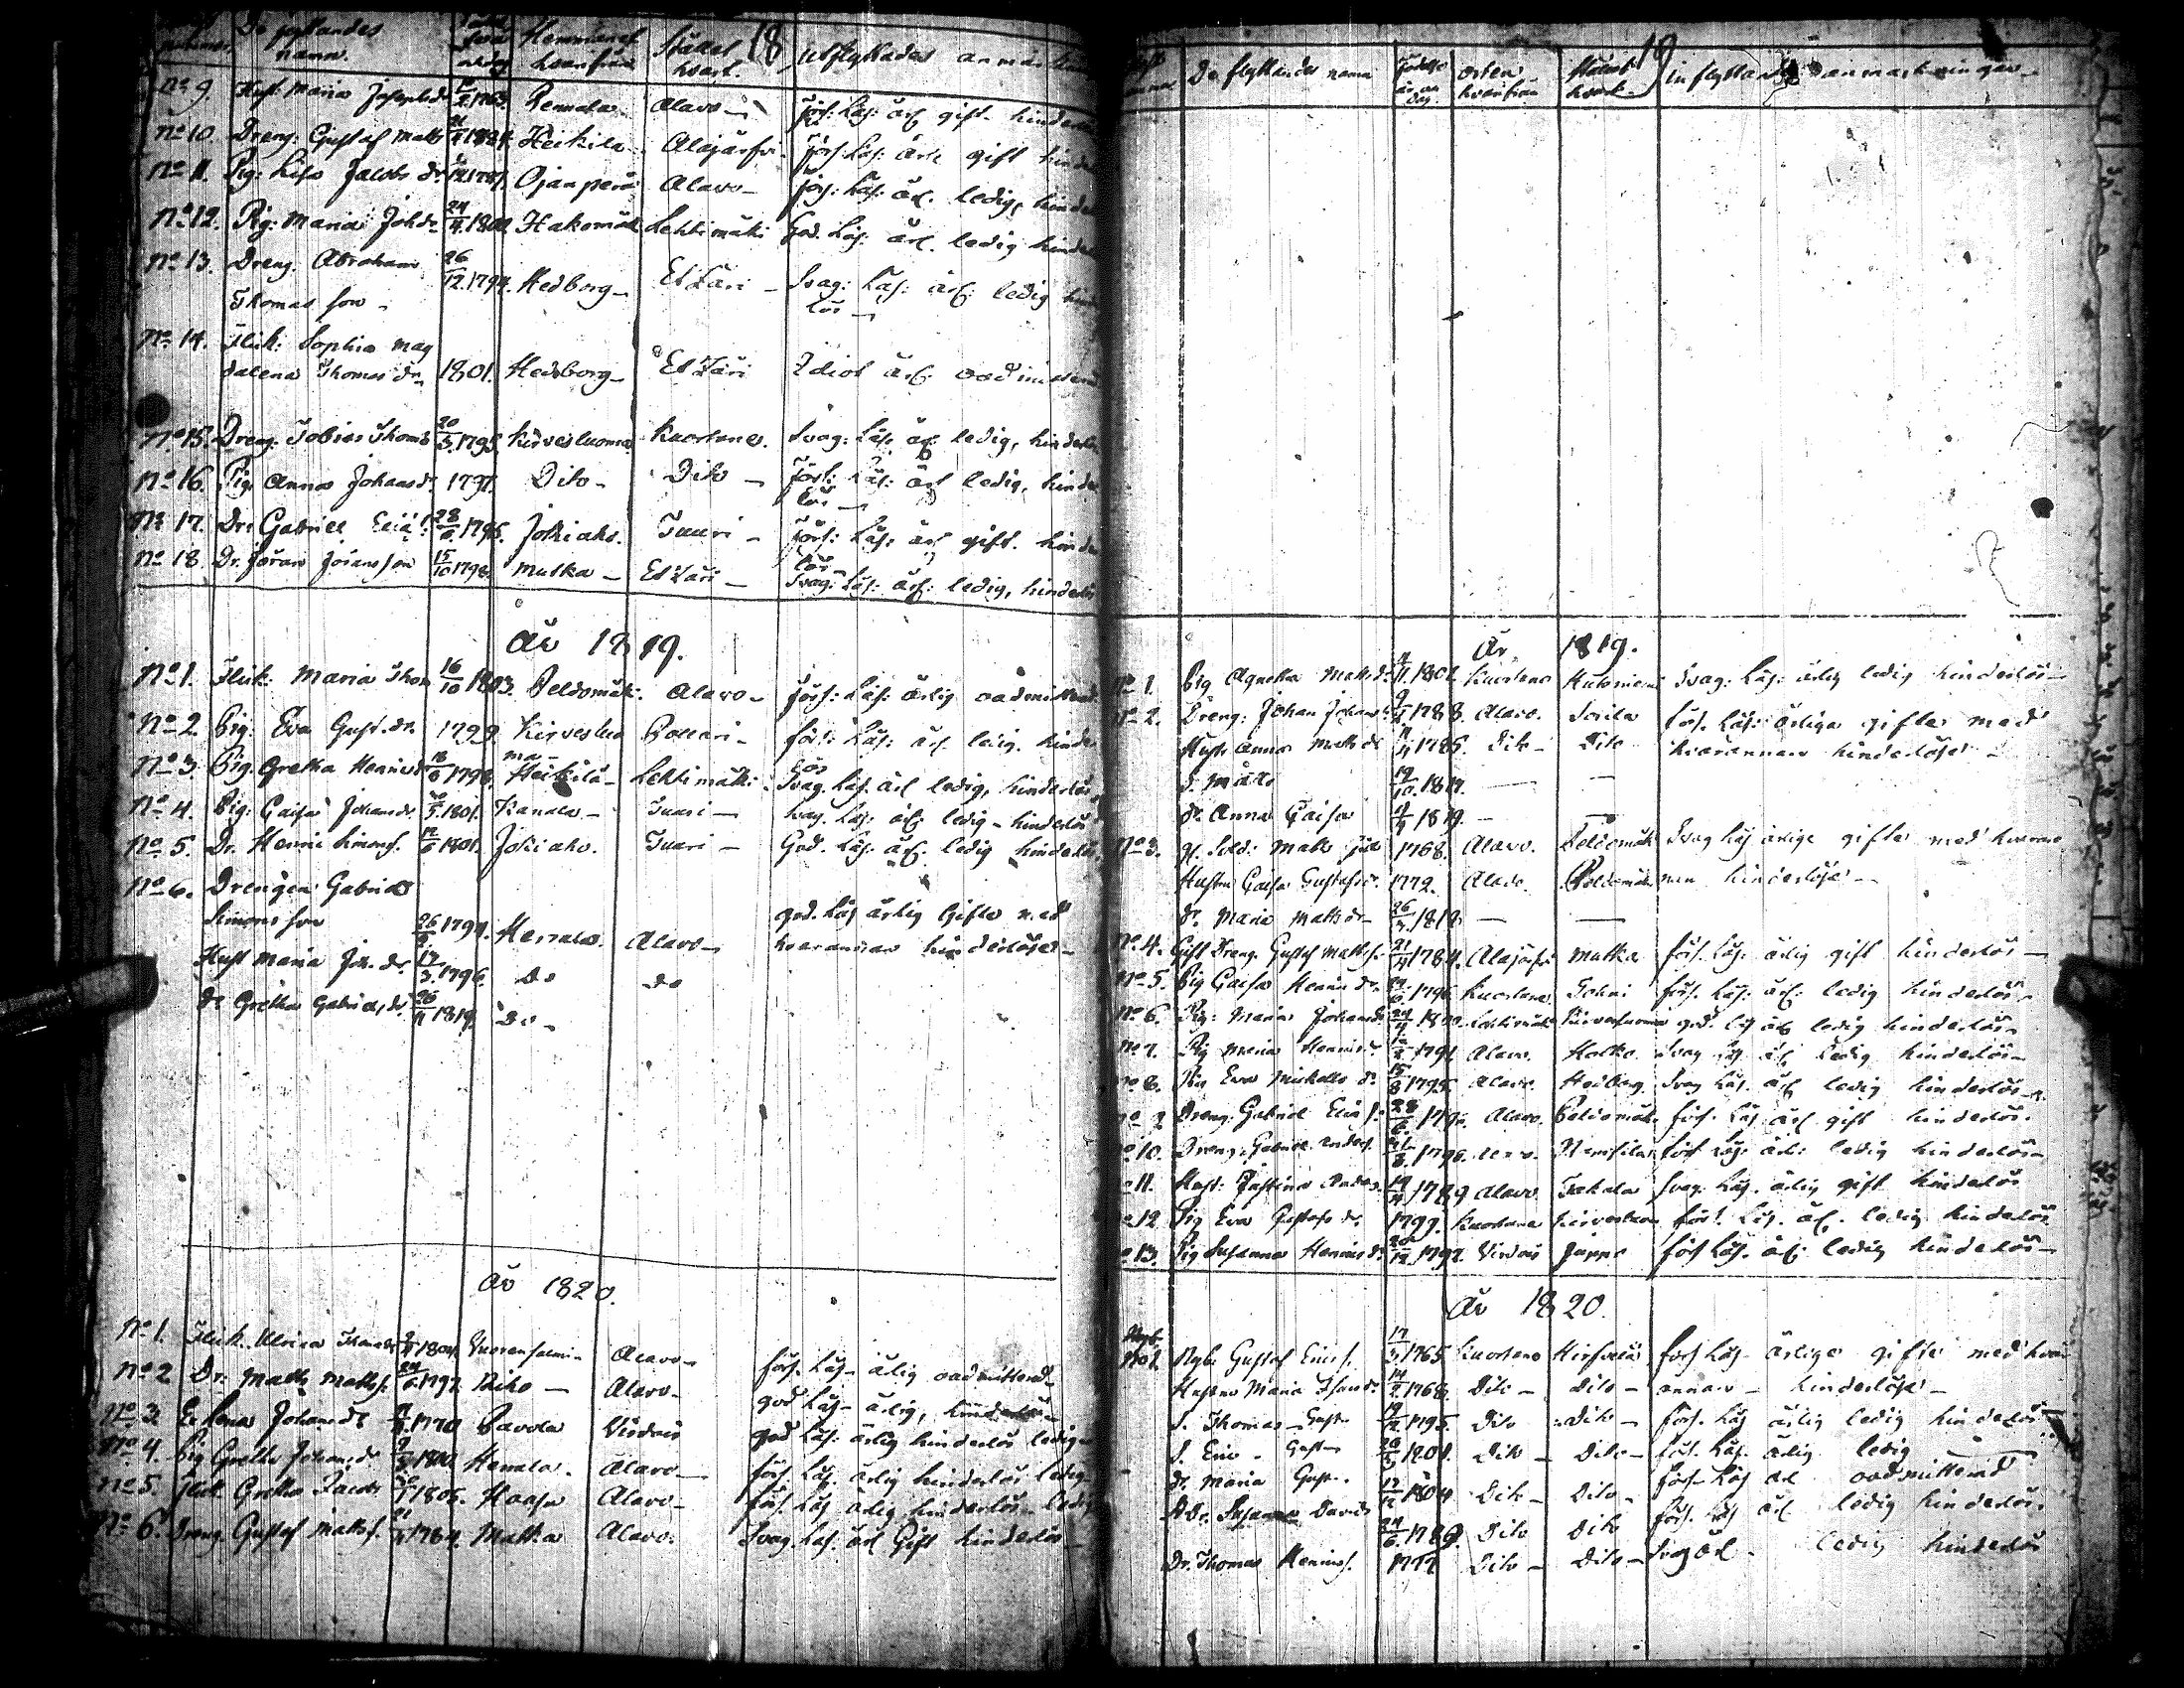 De flyttandes namn. Hemmanet hvarifrån Stället hvart. 18 utflyttades anmärk
No 9. Hust. Maria Josephsd. 1763. Rennala Alavo förs: Läs: ärl gift hinder
No 10. Dreng Gustaf Matts 1784. Heikila Alajärfvi förs: Läs: ärl gift hinder
No 11. Pig: Lisa Jacobs dr 1781. Ojanperä Alavo förs: Läs: ärl. ledig, hinder
No 12. Pig: Maria Joh dr 24/4 1800. Hakomäk Lehtimäki God. Läs: ärl. ledig hinder
No 13. Dreng. Abraham 26/12 1794. Hedborg Etzäri Svag: Läs: ärl: ledig hinder
Thomas son lös
No 14. Flick: Sophia Mag
dalena Thomas dr 1801. Hedborg Etzäri Idiot ärl: oadmitterad
No 15. Dreng. Tobias Thoms 20/3 1795. Kirvesluoma Kuortane. Svag: Läs: ärl: ledig, hinderlös
No 16. Pig. Anna Johansd. 1797. Dito Dito Förs: Läs: ärl ledig, hinder
lös
No 17. Dr. Gabriel Elia s. 28/6 1795. Jokiaho. Tuuri Förs: Läs: ärl gift. hinder
lös
No 18. Dr. Joran Joransson 15/10 1798 Mutka Etzäri Svag: Läs: ärl: ledig, hinderlös
År 1819.
No 1. Flick: Maria Thom 16/10 1803. Peldomäk: Alavo förs: Läs: ärlig oadmitterad
No 2. Pig: Eva Gust. dr. 1799. Kirvesluo Pollari förs: Läs: ärl. ledig. hinder
ma lös
No 3. Pig. Gretha Henriks 1798. Heikilä Lehtimäki Svag. Läs. ärl ledig, hinderlös
No 4. Pig: Caisa Johansdr. 1801. Kanala Tuuri Svag. Läs: ärl: ledig hinderlös
No 5. Dr. Henric Simons s. 1801. Jokiaho. Tuuri God. Läs: ärl: ledig hinderlös.
No 6. Drengen Gabriel
Simons son 26/2 1794. Herrala. Alavo god. Läs ärlig Gifte med
Hust Maria Joh. dr. 17/3 1796. Do do hvarannan hinderlösa
dr Gretha Gabriels dr 26/11 1819. Do
År 1820.
No 1. Flick. Ulrica Thomasdr 1804. Vuorensalmi Alavo förs. Läs ärlig oadmitterad
No 2 Dr. Matts Matts s. 24/6 1797. Riiho Alavo god Läs ärlig, hinderlös
No 3. Enk. Lena Johans dr 1770 Pavola Virdois god Läs: ärlig hinderlös ledig
No 4. Pig Gretha Johansd 1800. Herrala. Alavo förs. Läs. ärlig hinderlös ledig
No 5. Flick Gretha Jacobs 1805. Haapa Alavo förs. Läs ärlig hinderlös ledig
No 6. Dreng Gustaf Matts s. 21/4 1784. Mutka Alavo. Svag. Läs. ärl Gift hinderlös
De flyttandes namn Födelse år och dag orten hvarifrån Stället hvart 19 inflyttandes anmärkningar
År 1819.
No 1. Pig Agneta Matts d. 1801. Kuortane Hutoniemi Svag: Läs: ärlig ledig hinderlös
No 2. Dreng: Johan Johans s. 1788. Alavo. Sorila förs. Läs: ärliga gifta med
Hust. Anna Matts dr 1785. Dito Dito hvarannan hinderlösa
s. Matts 19/10 1817.
dr. Anna Caisa 1819.
No 3. gl. Sold: Matts 1768. Alavo. Peldomäk Svag Läs ärliga gifta med hvaran
Hustru Caisa Gustafs dr. 1779. Alavo. Peldomäk nan hinderlösa
dr. Maria Matts dr 26/ 1818
No 4. Gift Dreng. Gustaf Matts s. 21/4 1784. Alajärfvi Mutka förs. Läs: ärlig gift hinderlös
No 5. Pig Caisa Henrics dr. 1796 Kuortane Tohni förs. Läs: ärl: ledig hinderlös
No 6. Pig: Maria Johansd 24/4 1800. Lehtimäki Kirvesluoma god. Läs ärl ledig hinderlös
No 7. Pig Maria Henricsdr. 1791 Alavo. Holko. Svag Läs ärl Ledig hinderlös
No 8. Pig Eva Michells dr 15/8 1795 Alavo. Hedborg Svag Läs. ärl ledig hinderlös
No 9 Dreng: Gabriel Elia s. 28/6 1795. Alavo. Peldomäk. förs. Läs ärl gift hinderlös.
No 10. Dreng. Gabriel Anders. 1790. Alavo. förs Läs: ärl: ledig hinderlös
No 11. Hust: Justina Anders. 1789 Alavo Takala Svag: Läs. ärlig gift hinderlös
No 12 Pig Eva Gustafs dr. 1799. Kuortane Kirvesluoma förs. Läs. ärl. ledig hinderlös
No 13. Pig Susanna Henrics dr. 1797. Virdois Jäppe förs Läs. ärl: ledig hinderlös
År 1820.
No 1. Nyb. Gustaf Erics s. 17/3 1765 Kuortane Hirfvelä förs Läs ärliga gifta med hvar
Hustru Maria 1768. Dito Dito annan hinderlösa
s. Thomas Gust. 19/12 1795. Dito Dito förs. Läs ärlig ledig hinderlös
s. Eric Gust 1801. Dito Dito förs. Läs. ärlig ledig
dr. Maria Gust. 1804 Dito Dito förs. Läs ärl oadmitterad
Dr. Susanna Davids 24/6 1789. Dito Dito förs. Läs ärl ledig hinderlös.
Dr. Thomas Henrics s. 1777 Dito Dito Svag ärl ledig hinderlös